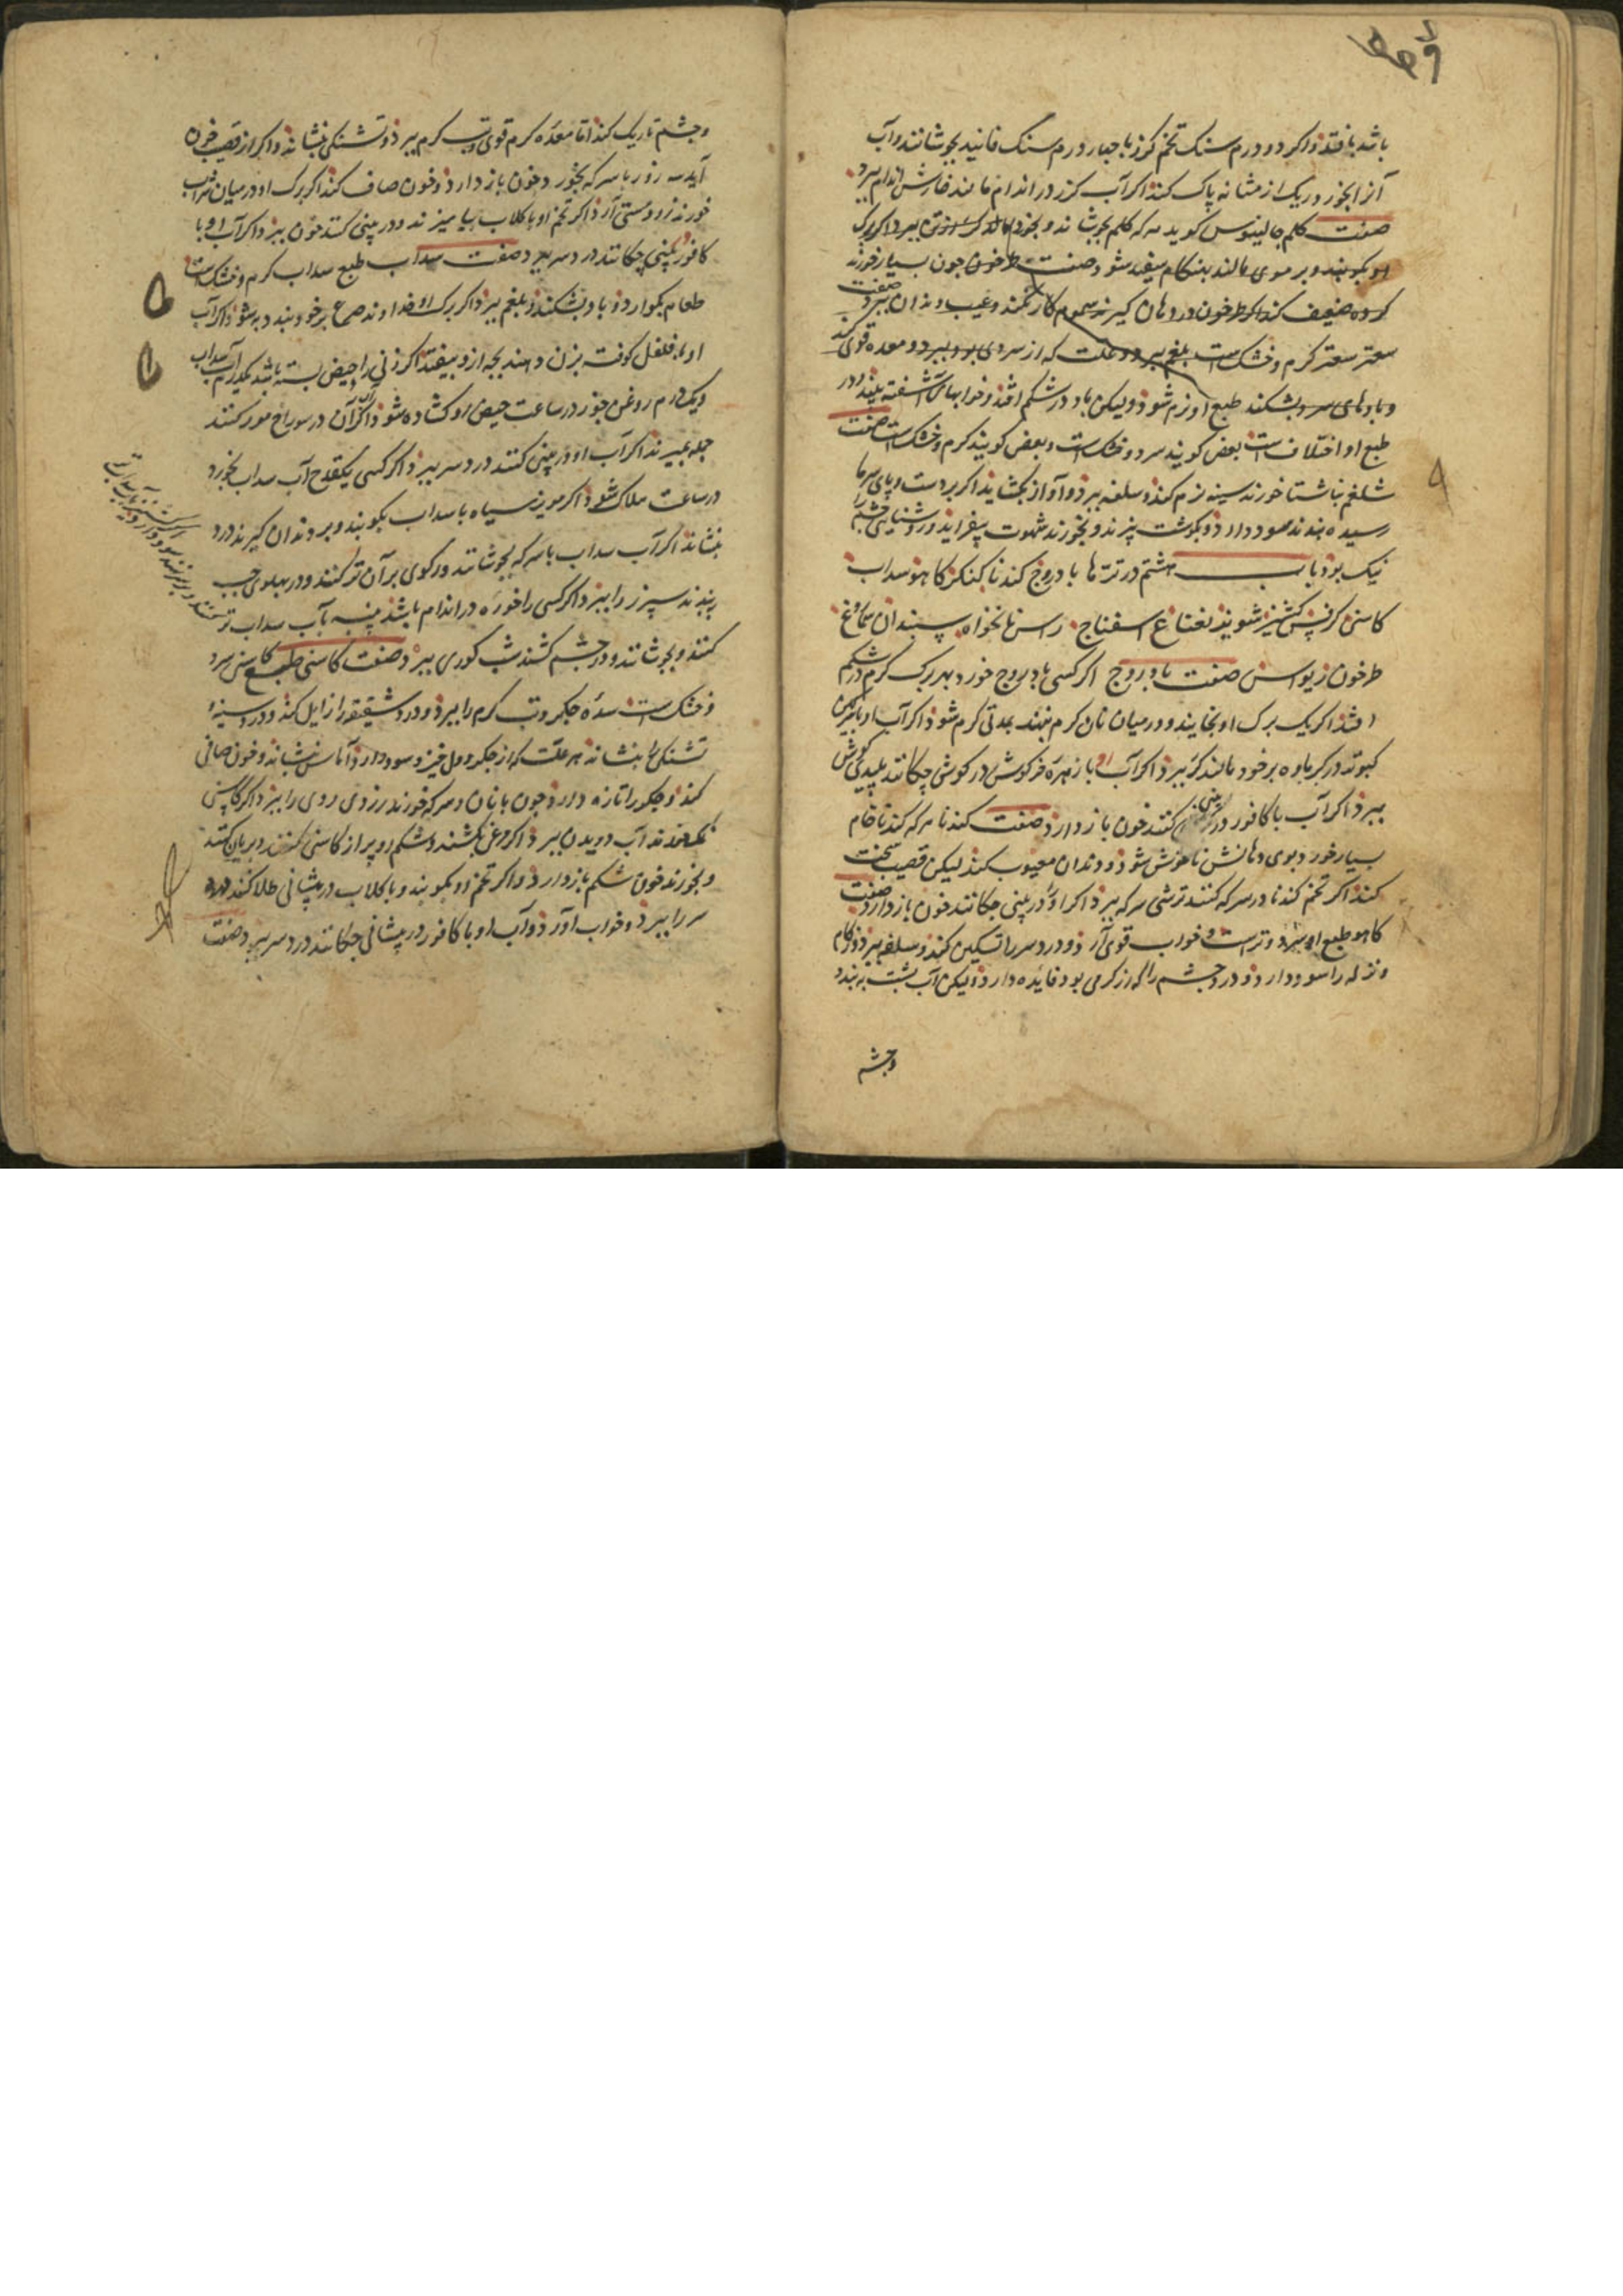 باشد بافتد و اگر دو درم سنک تخم کرز با چهار درم سنک فانید بجوشانند و آب
آنرا بخورد ریک از مثانه پاک کند اگر آب کرز در اندام مالند خارش اندام ببرد
صفت کلم جالینوس کوید هرکه کلم بجوشاند و بخورد
بکوبند و بر موی مالند بنکام سفید شود صفت طرخون چون بسیار خورند
کرده ضعیف کند اگر طرخون در دهان کیرند سموم کار نکند و عیب دندان ببرد صفت
سعتر سعتر کرم و خشک است بلغم ببرد و علت که از سردی بود ببرد و معده قوی کند
و بادهای سرد بشکند طبع او نرم شود ولیکن باد در شکم افتد و خوابهای آشفته بیند و در
طبع او اختلاف است بعض کویند سرد و خشک است و بعض کویند کرم و خشک است صفت
شلغم ناشتا خورند سینه نرم کند و سلفه ببرد و آواز بکشاید اگر بر دست و پای سرما
رسیده نهند سود دارد و بکوشت پزند و بخورند شهوت بیفزاید و روشنایی چشم را
نیک بود باب هشتم در ترها بادروج کندنا کنکر کاهو سداب
کاسنی کرفس کشنیز شوید نعناع اسفناج راسن نانخواه سپندان سماروغ
طرخون زیواسن صفت بادروج اگر کسی بادروج خورد بهر برک کرم در شکم
افتد اگر یک برک او بخایند و در میان نان کرم نهند بمدتی کرم شود اگر آب او با سرکین
کبوتر در کرباوه بر خود مالند کر ببرد اگر آب او با زهره خرکوش در کوش چکانند پلیدی کوش
ببرد اگر آب با کافور در بینی کنند خون باز دارد صفت کندنا هرکه کندنا خام
بسیار خورد بوی دهانش ناخوش شود و دندان معیوب کند لیکن قضیب سخت
کند اگر تخم کندنا در سرکه کنند ترشی سرکه ببرد اگر او را در بینی چکانند خون باز دارد صفت
کاهو طبع او سرد و تر است و خواب قوی آرد و درد سر را تسکین کند و سلفه ببرد و زکام
و نزله را سود دارد و درد چشم را که از کرمی بود فایده دارد ولیکن آب پشت ببندد
وچشم
وچشم تاریک کند اما معده کرم قوی و تب کرم ببرد و تشنکی بنشاند و اگر از قضیب خون
آید سه روز با سرکه بخورد خون باز دارد و خون صاف کند اگر برک او در میان شراب
خورند زود مستی آرد اگر تخم او با کلاب بیامیزند و در بینی کنند خون ببرد اگر آب او با
کافور ببینی چکانند درد سر ببرد صفت سداب طبع سداب کرم و خشک است
طعام بکوارد و باد بشکند و بلغم ببرد اگر برک او خداوند صرع بر خود بندد به شود اگر آب
او با فلفل کوفته بزن دهند بچه ازو بیفتد اگر زنی را حیض بسته باشد یکدرم آب سداب
و یک درم روغن جوز در ساعت حیض او کشاده شود و اگر از آن در سوراخ مور کنند
جمله بمیرند اگر آب او در بینی کنند درد سر ببرد اگر کسی یکقدح آب سداب بخورد
در ساعت هلاک شود اگر مویز سیاه با سداب بکوبند و بر دندان کیرند درد
بنشاند اگر آب سداب با سرکه بجوشانند و رکوی بر آن تر کنند و در پهلوی چپ
بندند سپرز را ببرد اگر کسی را خوره در اندام باشد پنبه بآب سداب تر
کنند و بجوشانند و در چشم کشند شب کوری ببرد صفت کاسنی طبع کاسنی سرد
و خشک است سده جکر و تب کرم را ببرد و درد شقیقه را زایل کند و درد سینه و
تشنکی را بنشاند هر علت که از جکر و دل خیزد سود دارد و آماس بنشاند و خون صافی
کند و جکر را تازه دارد چون با نان و سرکه خورند زردی روی را ببرد اگر کاسنی
آب دویدن ببرد اگر مرغی بکشند و شکم او پر از کاسنی کنند و بریان کنند
و بخورند خون شکم باز دارد و اگر تخم او بکوبند و با کلاب در پیشانی طلا کنند درد
سر را ببرد و خواب آورد و آب او با کافور در پیشانی چکانند درد سر ببرد صفت